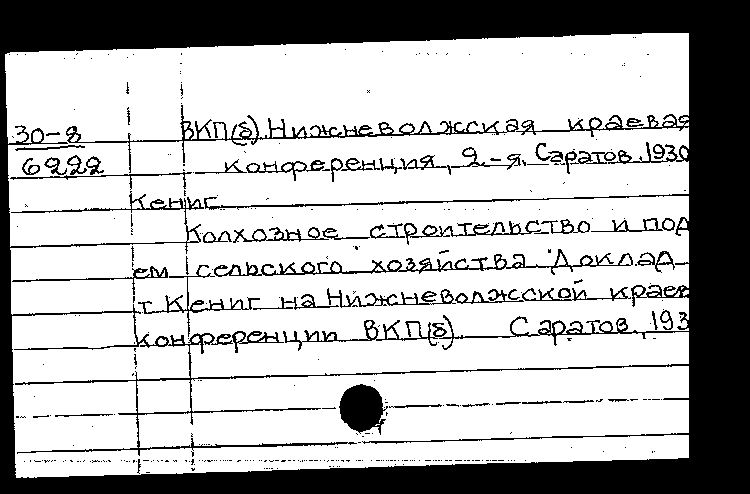 30-8 ВКП(б). Нижневолжская краевая
6222 конференция, 2-я. Саратов. 1930
Кениг
Колхозное строительство и под
ем сельского хозяйства. Доклад
т Кениг на Нижневолжской краев
конференции ВКП(б). Саратов, 193